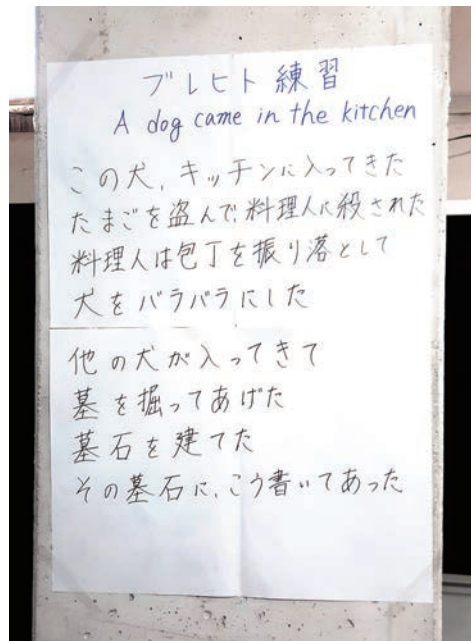 ブレヒト 練習
A dog came in the kitchen
この犬、キッチンに入ってきた
たまごを盗んで、料理人に殺された
料理人は包丁を振り落として
犬をバラバラにした
他の犬が入ってきて
墓を掘ってあげた
墓石を建てた
その墓石に、こう書いてあった